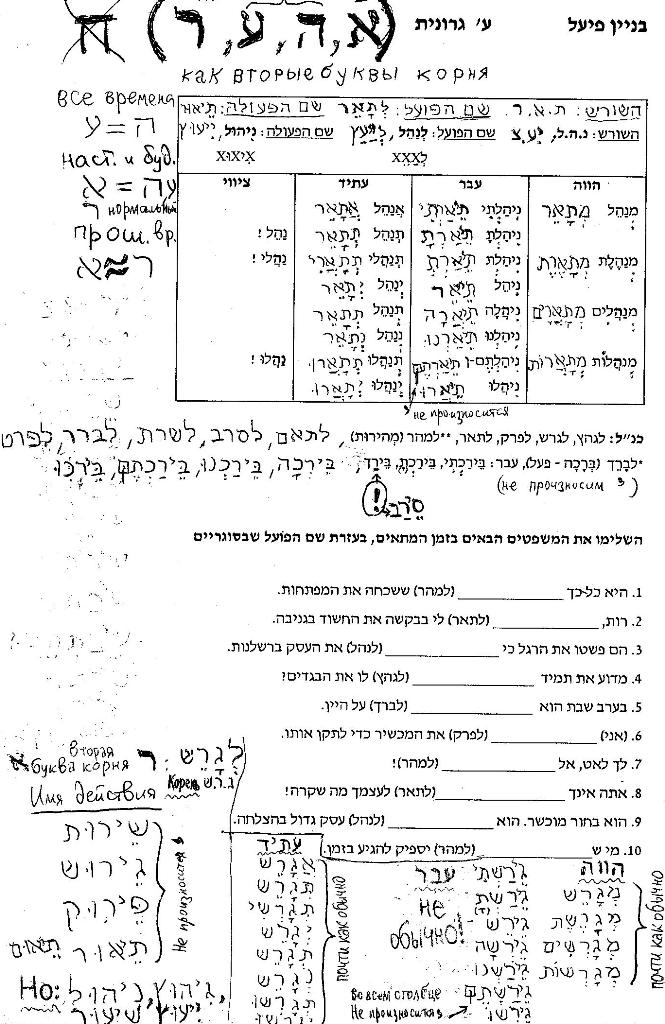 בניין פיעל ע' גרונית (א, ה, ע, ר) ח
как вторые буквы корня
все времена
ה=ע
наст. и буд.
עה = א
ר нормальный
прош. вр.
ר≈א
השורש: ת.א.ר. שם הפועל: לְתָאֵר שם הפעולה: תיאור
השורש: נ.ה.ל, יָעַץ שם הפועל: לְנַהֵל, לְיַעֵץ שם הפעולה: נִיהוּל, יִיעוּץ
לְXַXֵX XִיXוּX
הווה עבר עתיד ציווי
מְנַהֵל מְתָאֵר נִיהַלְתִּי תֵיאַרְתִּי אֲנַהֵל אֲתָאֵר
נִיהַלְתָּ תֵיאַרְתָּ תְּנַהֵל תְּתָאֵר נַהֵל !
מְנַהֶלֶת מְתָאֶרֶת נִיהַלְתְּ תֵיאַרְתְּ תְּנַהֲלִי תְּתָאֲרִי נַהֲלִי !
נִיהֵל תֵיאֵר יְנַהֵל יְתָאֵר
מְנַהֲלִים מְתָאֲרִים נִיהֲלָה תֵיאֲרָה תְּנַהֵל תְּתָאֵר
נִיהַלְנוּ תֵיאַרְנוּ נְנַהֵל נְתָאֵר
מְנַהֲלוֹת מְתָאֲרוֹת נִיהַלְתֶּם-ן תֵיאַרְתֶּם תְּנַהֲלוּ תְּתָאֲרוּ נַהֲלוּ !
נִיהֲלוּ תֵיאֲרוּ יְנַהֲלוּ יְתָאֲרוּ
не произносится
כנ"ל: לגהץ, לגרש, לפרק, לתאר, **למהר (מְהִירוּת), לתאם, לסרב, לשרת, לברר, לפרט
*לְבָרֵךְ (בְּרָכָה - פעל), עבר: בֵּירַכְתִּי, בֵּירַכְתָּ, בֵּירֵךְ, בֵּירְכָה, בֵּירַכְנוּ, בֵּירַכְתֶּם, בֵּירְכוּ
(не произносим)
! סֵרֵב
השלימו את המשפטים הבאים בזמן המתאים, בעזרת שם הפועל שבסוגריים
1. היא כל-כך ____________ (למהר) ששכחה את המפתחות.
2. רות, ____________ (לתאר) לי בבקשה את החשוד בגניבה.
3. הם פשטו את הרגל כי ____________ (לנהל) את העסק ברשלנות.
4. מדוע את תמיד ____________ (לגהץ) לו את הבגדים!
5. בערב שבת הוא ____________ (לברך) על היין.
6. (אני) ____________ (לפרק) את המכשיר כדי לתקן אותו.
7. לך לאט, אל ____________ (למהר)!
8. אתה אינך ____________ (לתאר) לעצמך מה שקרה!
9. הוא בחור מוכשר. הוא ____________ (לנהל) עסק גדול בהצלחה.
10. מי ש____________ (למהר) יספיק להגיע בזמן.
לְגָרֵשׁ
вторая
буква корня : ר
Корень ג.ר.ש
Имя действия
שֵׁירוּת
גֵּירוּשׁ
פֵּירוּק
תֵּיאוּר תֵּיאוּם
Не произносится
Но: גִיהוּץ, נִיהוּל,
יִיעוּץ, שִׁיעוּר
עתיד
אֲגָרֵשׁ
תְּגָרֵשׁ
תְּגָרְשִׁי
יְגָרֵשׁ
תְּגָרֵשׁ
נְגָרֵשׁ
תְּגָרְשׁוּ
יְגָרְשׁוּ
почти как обычно
עבר
не
обычно!
גֵּירַשְׁתִּי
גֵּירַשְׁתָּ
גֵּירֵשׁ
גֵּירְשָׁה
גֵּירַשְׁנוּ
גֵּירַשְׁתֶּם
גֵּירְשׁוּ
Во всем столбце
Не произносится
הווה
מְגָרֵשׁ
מְגָרֶשֶׁת
מְגָרְשִׁים
מְגָרְשׁוֹת
почти как обычно